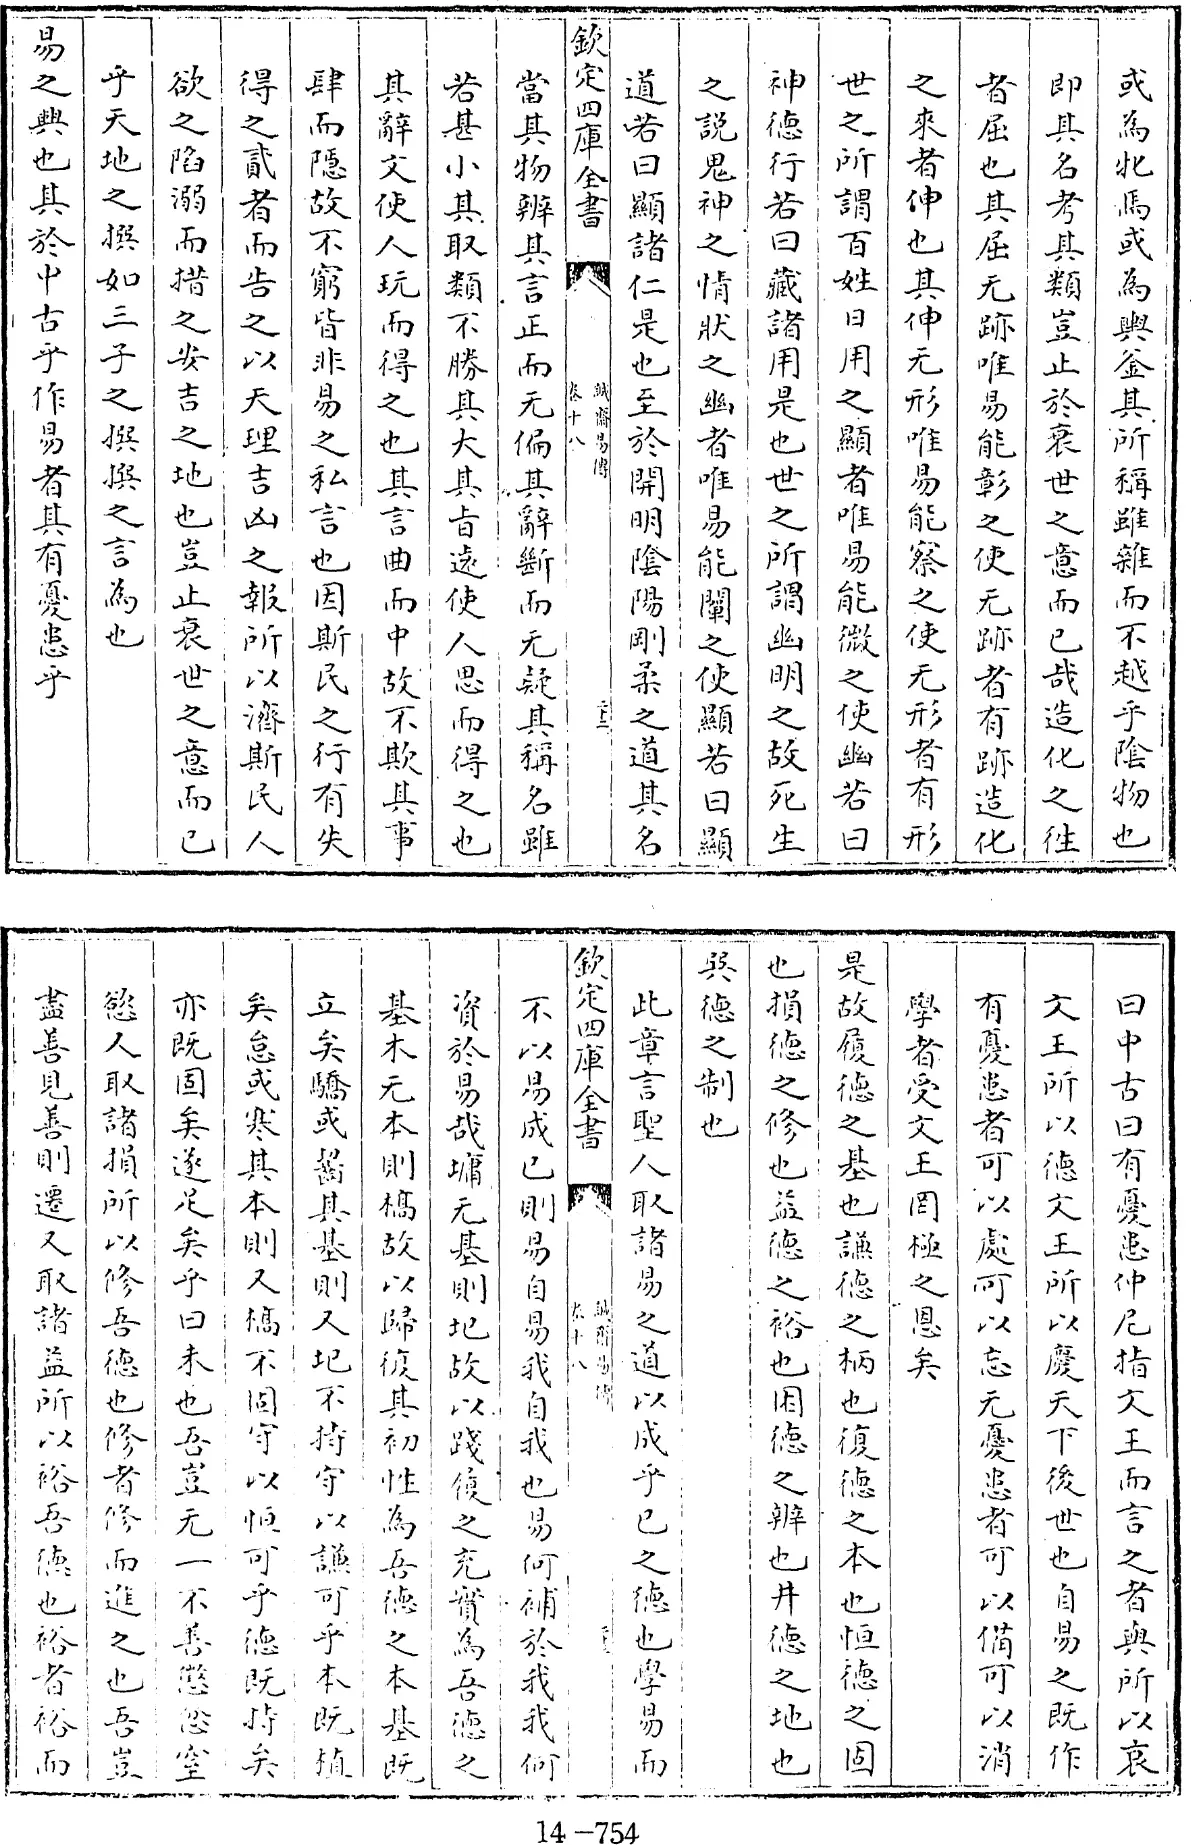 或為牝馬或為輿釜其所稱雖雜而不越乎陰物也
即其名考其類豈止於衰世之意而已哉造化之徃
者屈也其屈无跡唯易能彰之使无跡者有跡造化
之來者伸也其伸无形唯易能察之使无形者有形
世之所謂百姓日用之顯者唯易能微之使幽若曰
神德行若曰藏諸用是也世之所謂幽明之故死生
之説鬼神之情狀之幽者唯易能闡之使顯若曰顯
道若曰顯諸仁是也至於開明陰陽剛柔之道其名
欽定四庫全書
誠齋易傳
卷十八
當其物辨其言正而无偏其辭斷而无疑其稱名雖
若甚小其取類不勝其大其㫖逺使人思而得之也
其辭文使人玩而得之也其言曲而中故不欺其事
肆而隠故不窮皆非易之私言也因斯民之行有失
得之貳者而告之以天理吉凶之報所以濟斯民人
欲之陷溺而措之安吉之地也豈止衰世之意而已
乎天地之撰如三子之撰撰之言為也
易之興也其於中古乎作易者其有憂患乎
曰中古曰有憂患仲尼指文王而言之者與所以哀
文王所以德文王所以慶天下後世也自易之既作
有憂患者可以處可以忘无憂患者可以備可以消
學者受文王罔極之恩矣
是故履德之基也謙德之柄也復德之本也恒德之固
也損德之修也益德之裕也困德之辨也井德之地也
巽德之制也
此章言聖人取諸易之道以成乎已之德也學易而
欽定四庫全書
誠齋易傳
卷十八
不以易成已則易自易我自我也易何補於我我何
資於易哉墉无基則圮故以踐履之充實為吾德之
基木无本則槁故以歸復其初性為吾德之本基既
立矣驕或齧其基則又圮不持守以謙可乎本既植
矣怠或寒其本則又槁不固守以恒可乎德既持矣
亦既固矣遂足矣乎曰未也吾豈无一不善懲忿窒
慾人取諸損所以修吾德也修者修而進之也吾豈
盡善見善則遷又取諸益所以裕吾德也裕者裕而
14-754